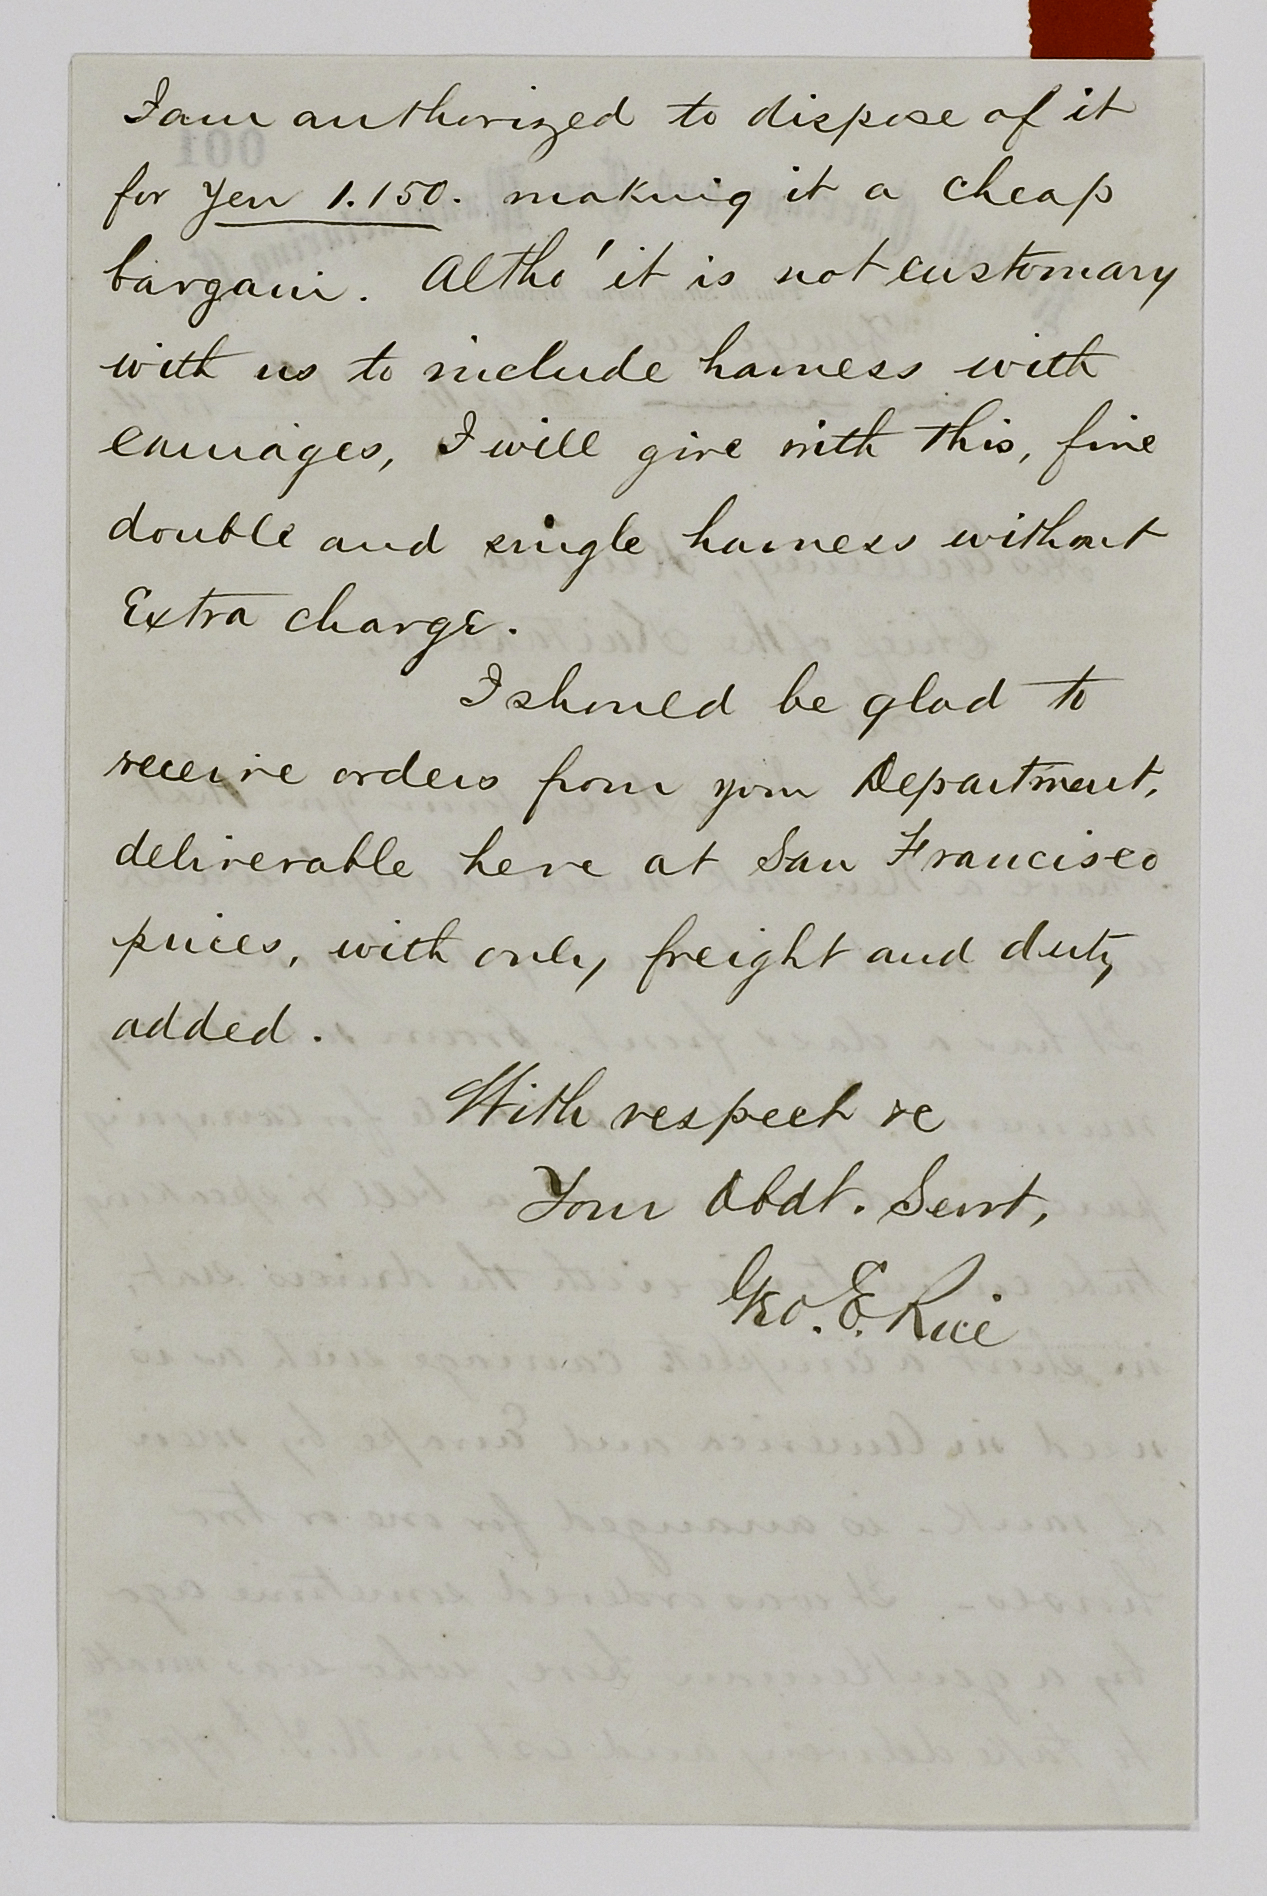 I am authorized to dispose of it
for Yen 1.150. making it a cheap
bargain. Altho' it is not customary
with us to include harness with
carriages, I will give with this, fine
double and single harness without
Extra charge.
I should be glad to
receive orders from your Department,
deliverable here at San Francisco
prices, with only freight and duty
added.
With respect &c
Your Obdt. Servt,
Geo. E. Rice